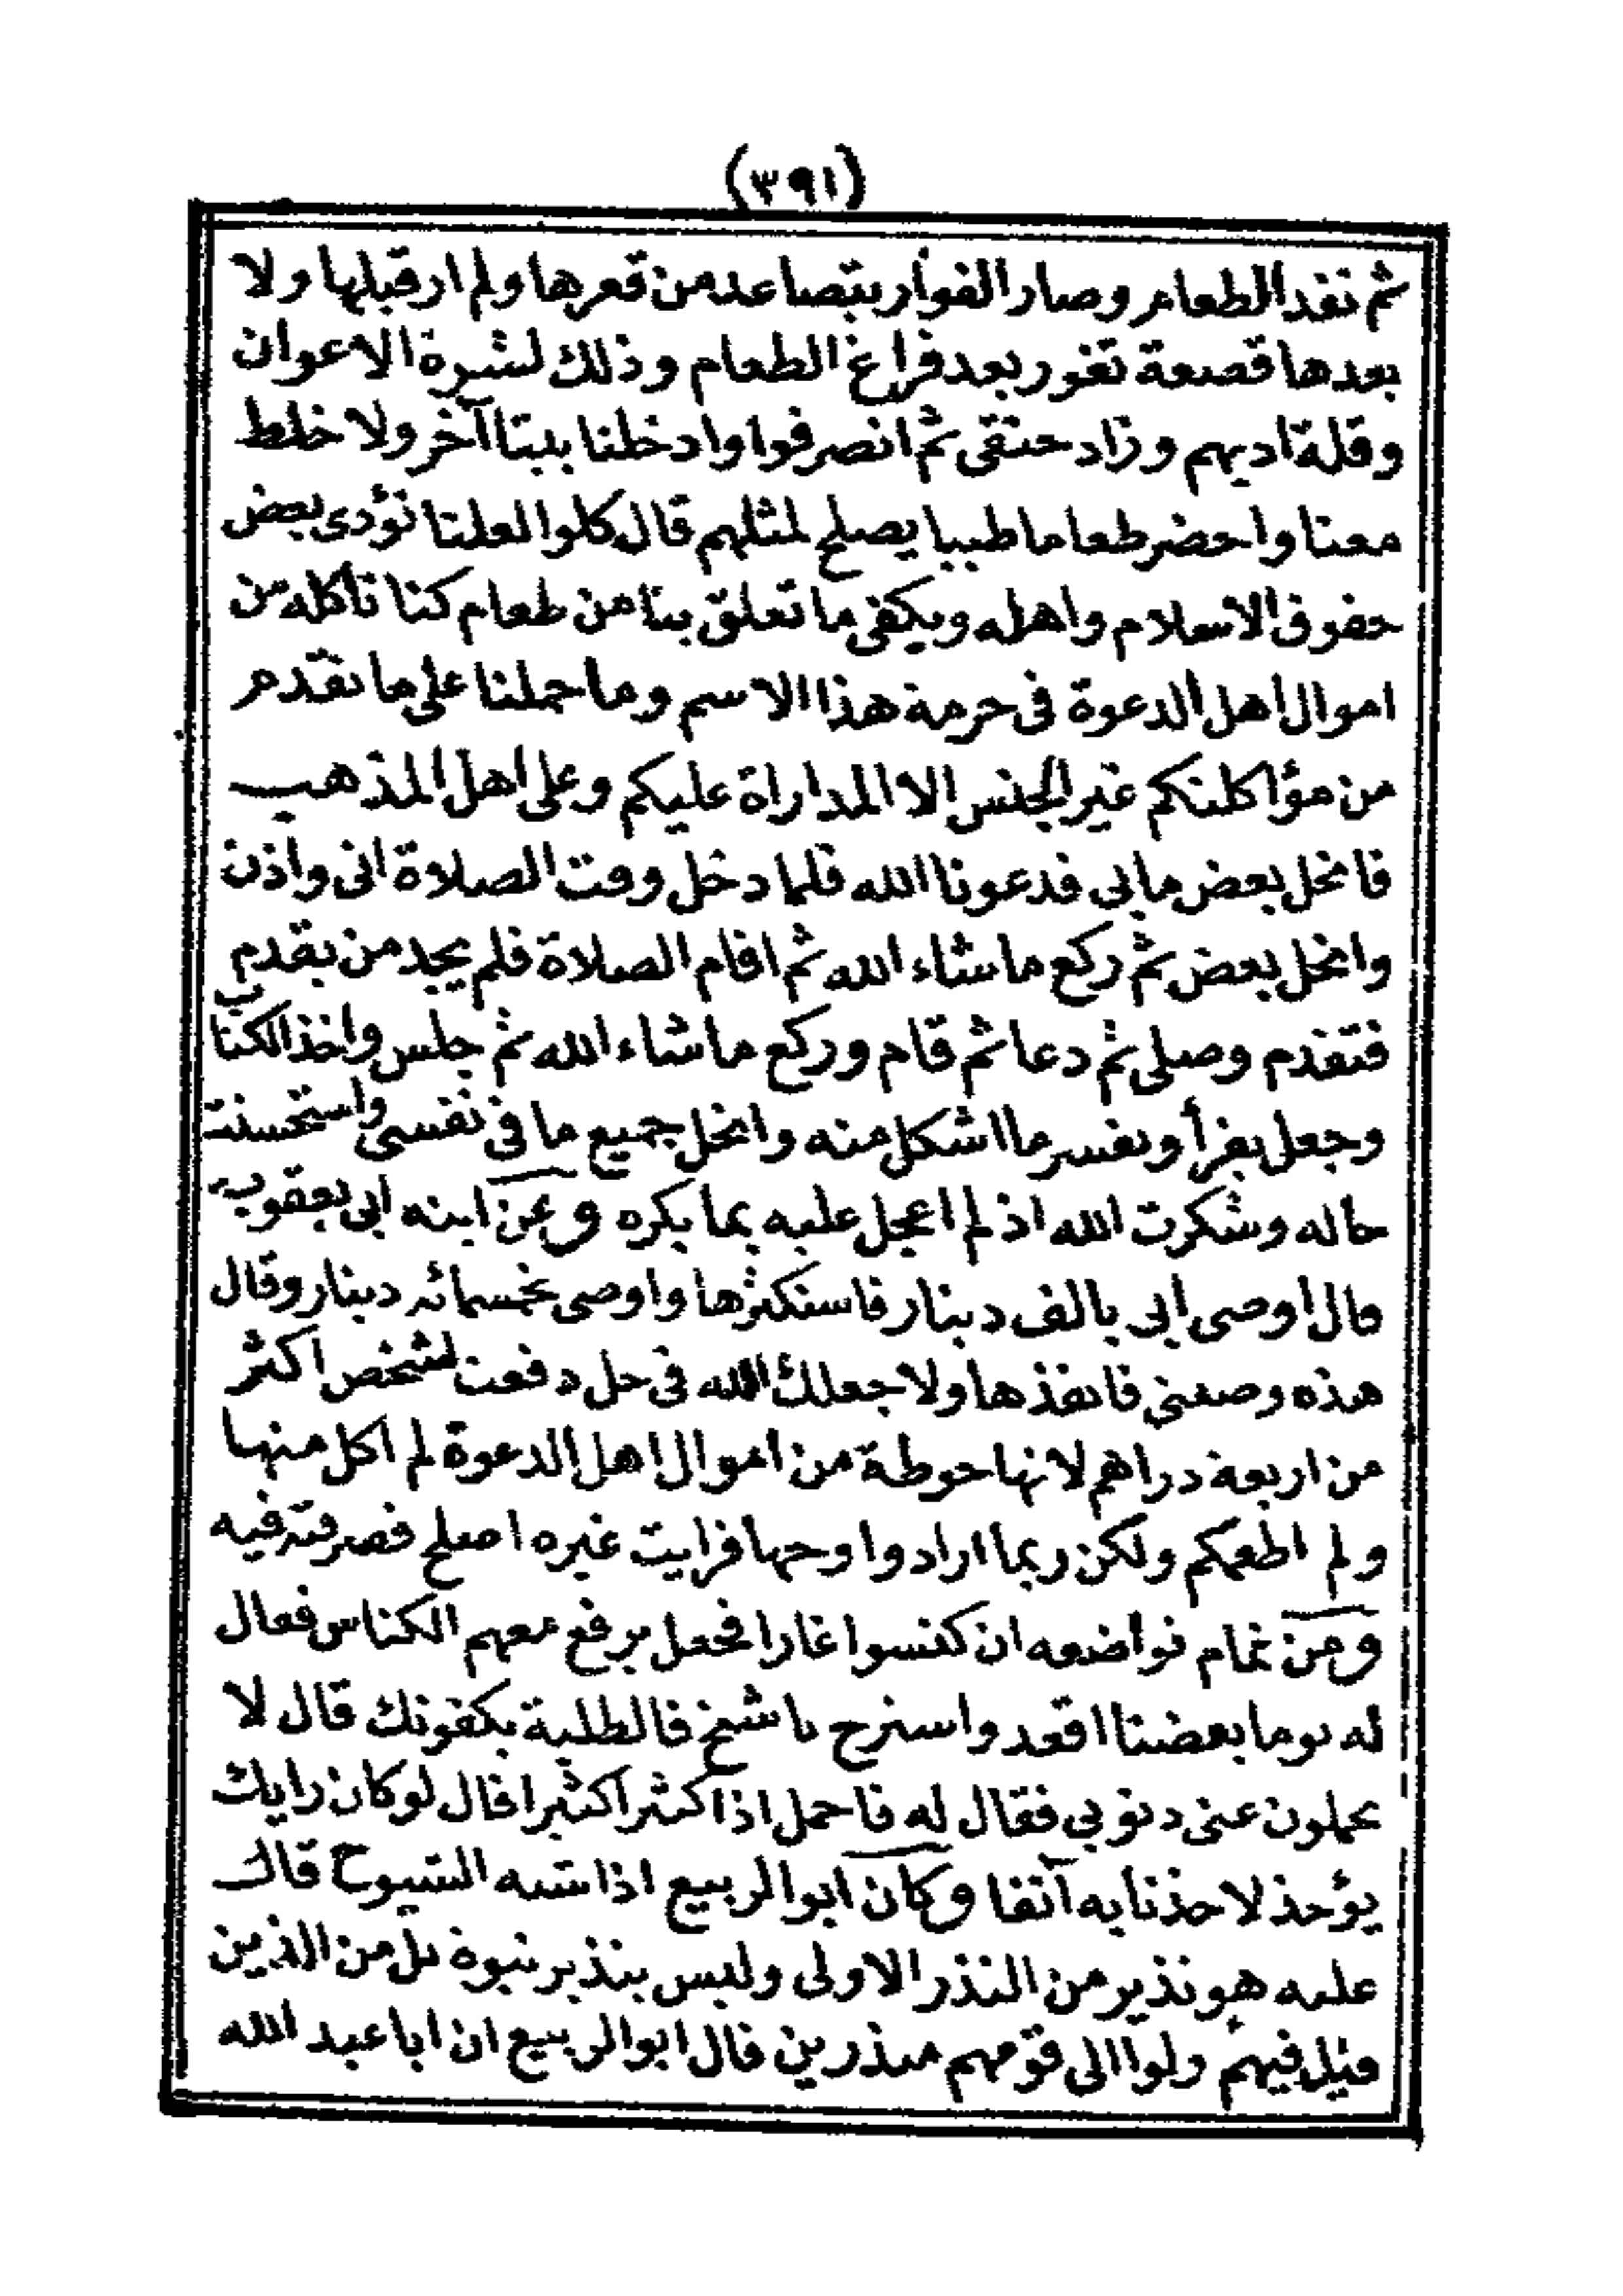 (٣٩١)
ثم نفد الطعام وصار الفوار يتصاعد من قعرها ولم ار قبلها ولا
بعدها قصعة تفور بعد فراغ الطعام وذلك لشرة الاعوان
وقلة ادبهم وزاد حنقى ثم انصرفوا وادخلنا بيتا آخر ولا خلط
معنا واحضر طعاما طيبا يصلح لمثلهم قال كلوا لعلنا نؤدى بعض
حقوق الاسلام واهله ويكفى ما تعلق بنا من طعام كنا نأكله من
اموال اهل الدعوة فى حرمة هذا الاسم وما حملنا على ما تقدم
من مؤاكلتكم غير الجنس الا المداراة عليكم وعلى اهل المذهب
فانحل بعض ما بى فدعونا الله فلما دخل وقت الصلاة اتى واذن
وانحل بعض ثم ركع ما شاء الله ثم اقام الصلاة فلم يجد من يقدم
فتقدم وصلى ثم دعا ثم قام وركع ما شاء الله ثم جلس واخذ الكتاب
وجعل يقرأ ويفسر ما اشكل منه وانحل جميع ما فى نفسى واستحسنت
حاله وشكرت الله اذ لم اعجل عليه بما يكره وعن ابنه ابى يعقوب
قال اوصى ابى بالف دينار فاستكثرها واوصى بخمسمائه دينار وقال
هذه وصيتى فانفذها ولا جعلك الله فى حل دفعت لشخص اكثر
من اربعة دراهم لانها حوطة من اموال اهل الدعوة لم اكل منها
ولم اطعمكم ولكن ربما ارادوا وجها فرايت غيره اصلح فصرفته فيه
ومن تمام تواضعه ان كنسوا غارا فجعل يرفع معهم الكناس فقال
له يوما بعضنا اقعد واسترح يا شيخ فالطلبة يكفونك قال لا
يحملون عنى ذنوبى فقال له فاحمل اذا كثر اكثيرا قال لو كان رايك
يؤخذ لاخذنا به آنفا وكان ابو الربيع اذا شبه الشيوخ قال
عليه هو نذير من النذر الاولى وليس بنذير نبوة بل من الذين
قيل فيهم ولوا الى قومهم منذرين قال ابو الربيع ان ابا عبد الله